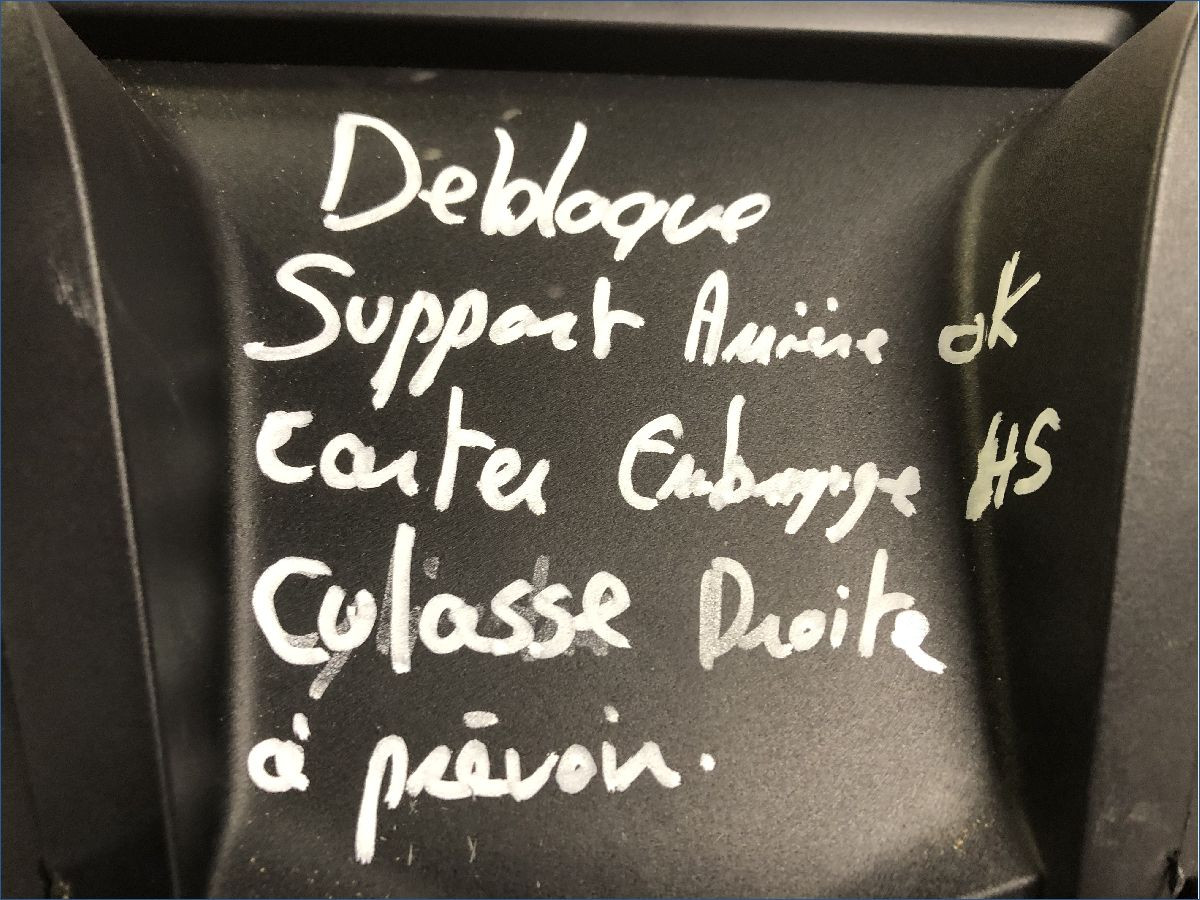 Debloque
Support Arrière OK
Carter Embrayage HS
Culasse Droite
à prévoir.